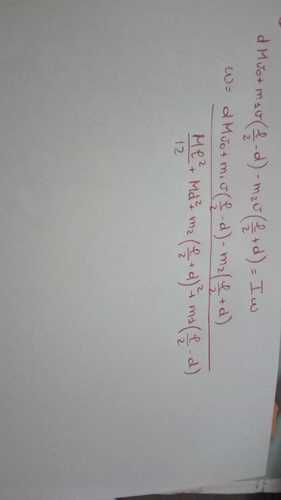 dMv₀ + m₁v(ℓ/2 - d) - m₂v(ℓ/2 + d) = Iω
ω = (dMv₀ + m₁v(ℓ/2 - d) - m₂(ℓ/2 + d)) / (Mℓ²/12 + Md² + m₂(ℓ/2 + d)² + m₁(ℓ/2 - d))